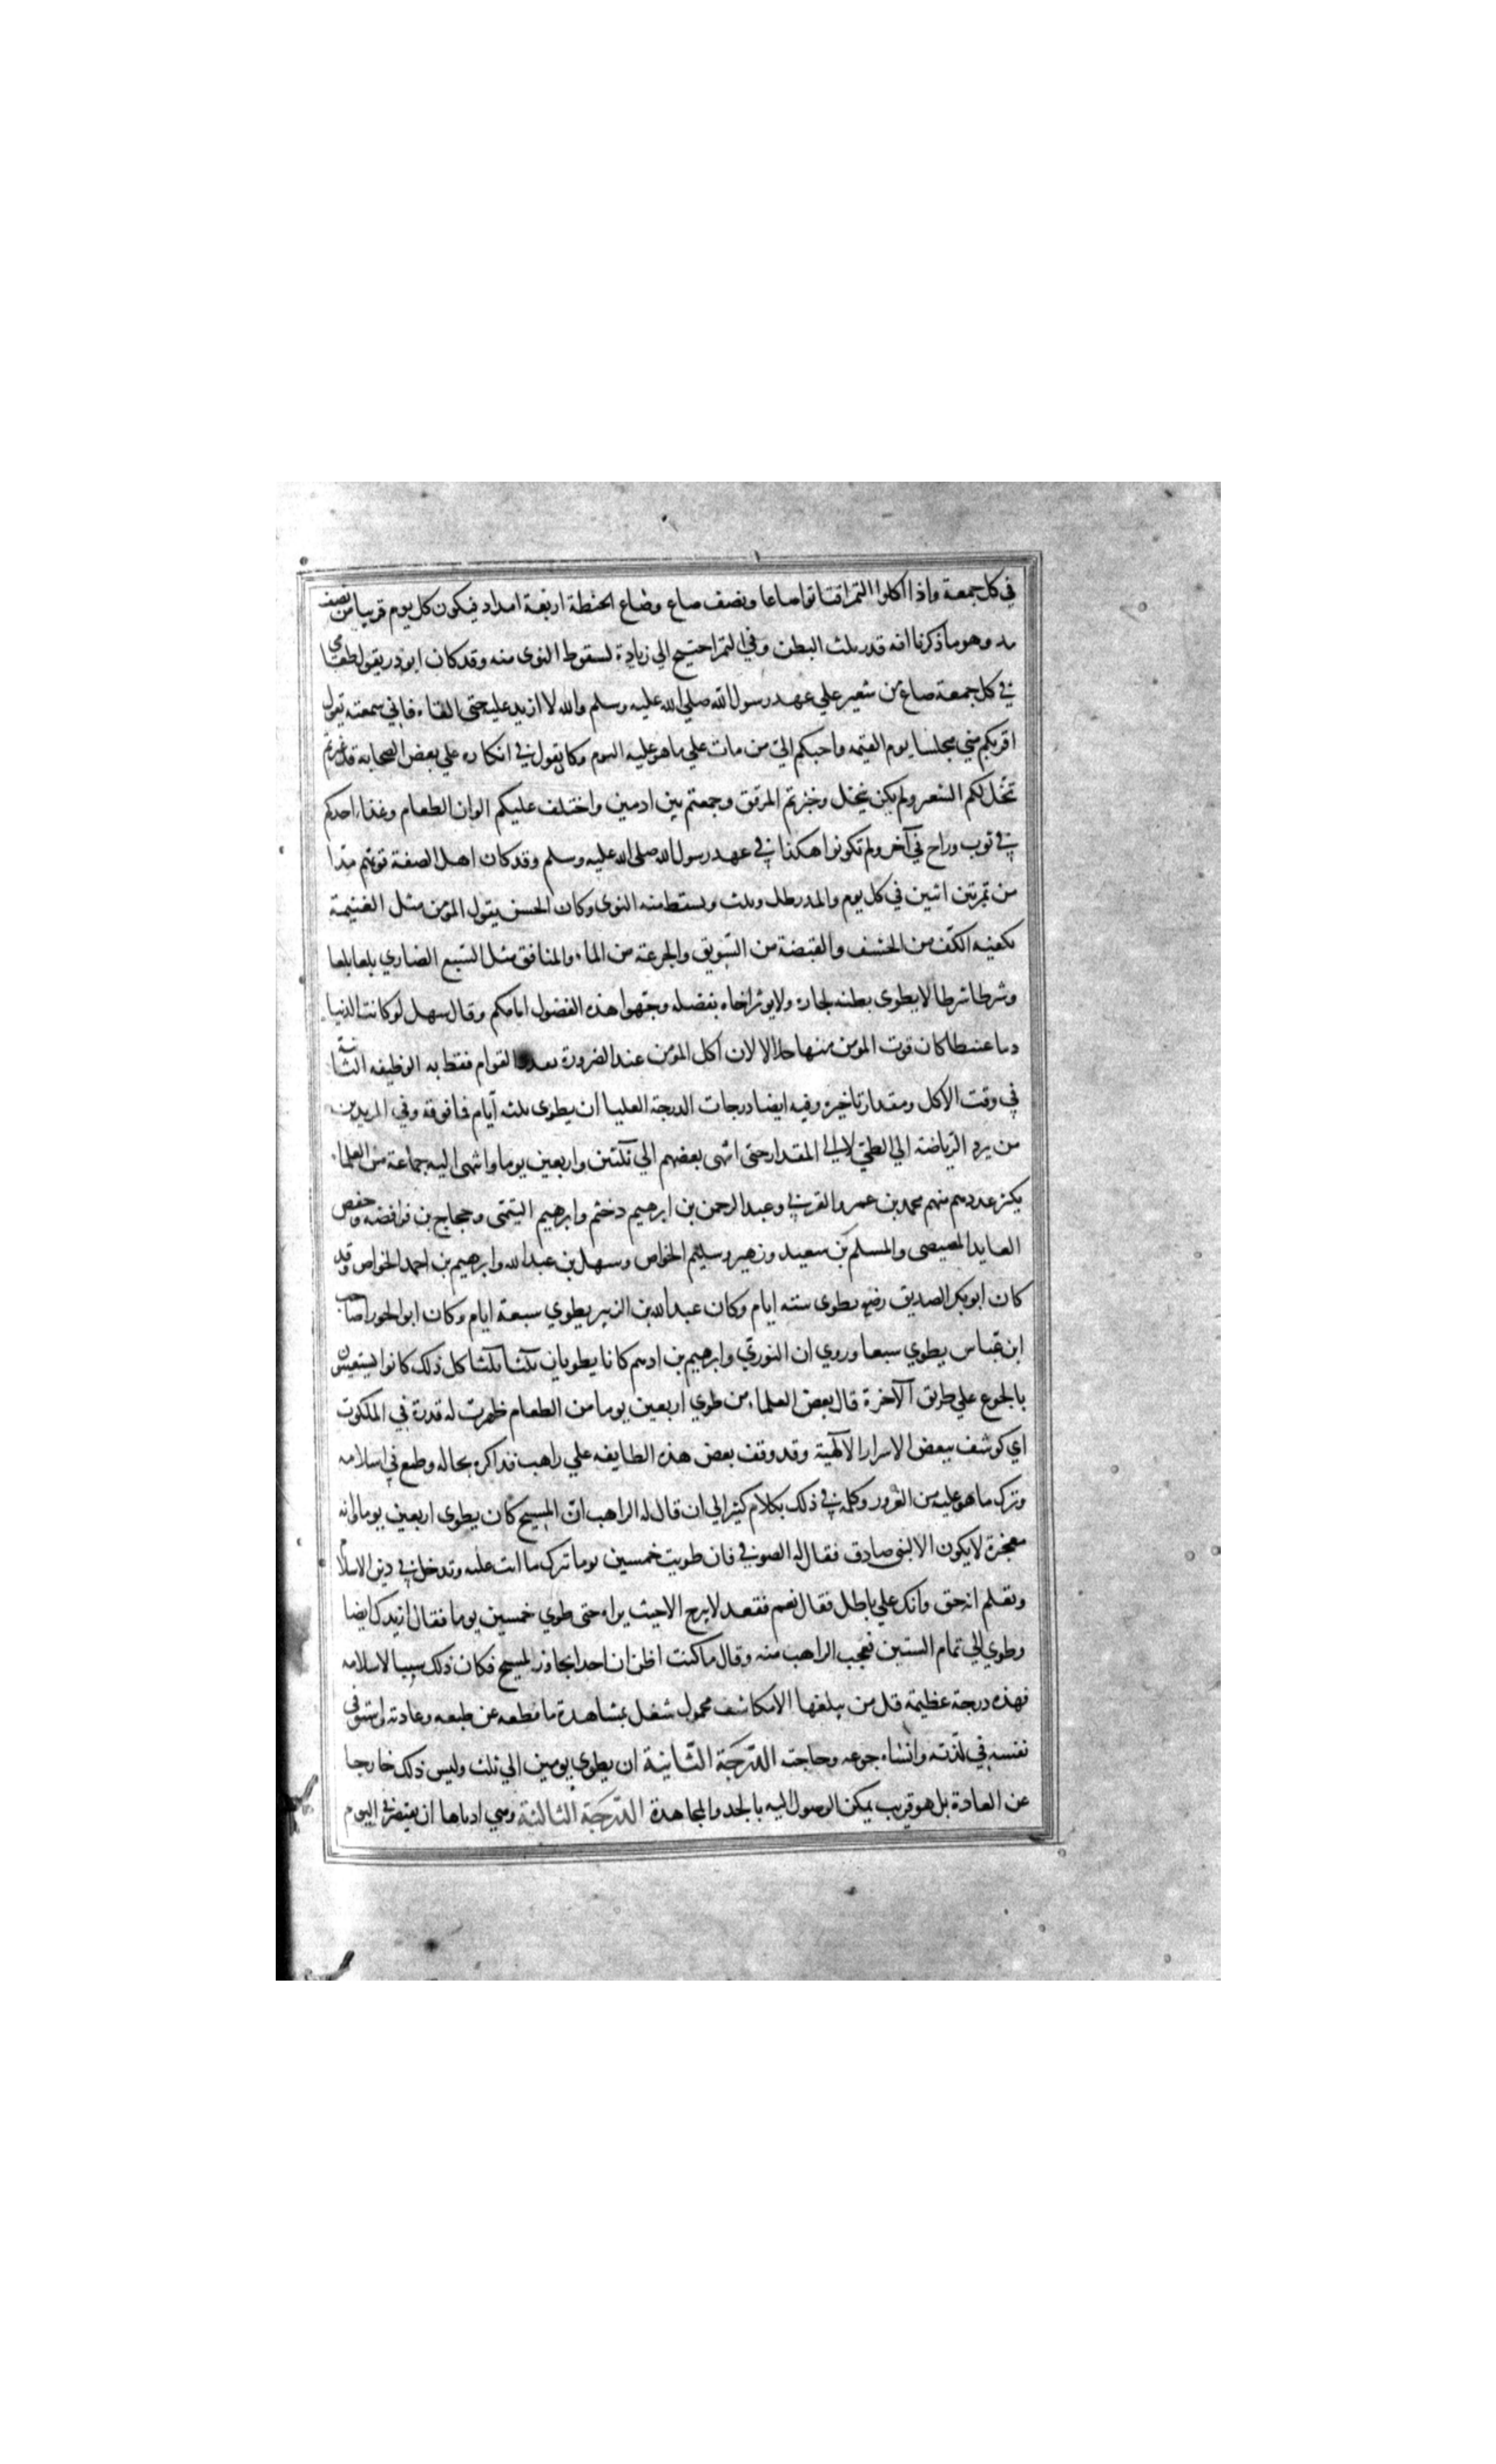 في كل جمعة واذا اكلوا التمر اقتاتوا صاعا ونصف صاع وصاع الحنطة اربعة امداد فيكون كل يوم قريبا من نصف
مد وهو ما ذكرنا انه قدر ثلث البطن وفي التمر احتيج الي زيادة لسقوط النوى منه وقد كان ابوذر يقول طعامي
في كل جمعة صاع من شعير علي عهد رسول الله صلي الله عليه وسلم والله لا ازيد عليه حتى القاه فاني سمعته يقول
اقربكم مني مجلسا يوم القيمة واحبكم الي من مات علي ما هو عليه اليوم وكان يقول في انكاره علي بعض الصحابة قد غيرتم
تنخل لكم الشعير ولم يكن ينخل وخبزتم المرقق وجمعتم بين ادمين واختلف عليكم الوان الطعام وغدا احدكم
في ثوب وراح في آخر ولم تكونوا هكذا في عهد رسول الله صلى الله عليه وسلم وقد كان اهل الصفة قوتهم مدا
من تمر بين اثنين في كل يوم والمد رطل وثلث ويسقط منه النوى وكان الحسن يقول المؤمن مثل الغنيمة
يكفيه الكف من الحشف والقبضة من السويق والجرعة من الماء والمنافق مثل السبع الضاري بلعا بلعا
وشرطا شرطا لا يطوى بطنه لجاره ولا يوثر اخاه بفضله وجهوا هذه الفضول امامكم وقال سهل لو كانت الدنيا
دما عبيطا كان قوت المومن منها حلالا لان اكل المؤمن عند الضرورة بعد القوام فقط به الوظيفه الثانية
في وقت الاكل ومقدار تاخيره وفيه ايضا درجات الدرجة العليا ان يطوى ثلثه ايام فما فوقه وفي المريدين
من يرد الرياضة الي الطي لا الي المقدار حتى انتهى بعضهم الي ثلثين واربعين يوما وانتهى اليه جماعة من العلماء
يكثر عددهم منهم محمد بن عمرو القرني وعبد الرحمن بن ابرهيم دخثم وابرهيم التيمى وحجاج بن فرافصه وحفص
العابد المصيصى والمسلم بن سعيد وزهير وسليم الخواص وسهل بن عبد الله وابرهيم بن احمد الخواص وقد
كان ابو بكر الصديق رضه يطوى ستة ايام وكان عبد الله بن الزبير يطوي سبعة ايام وكان ابو الجوزا صاحب
ابن عباس يطوي سبعا وروي ان الثوري وابرهيم بن ادهم كانا يطويان ثلثا ثلثا كل ذلك كانوا يستعينون
بالجوع علي طريق الآخرة قال بعض العلماء من طوي اربعين يوما من الطعام ظهرت له قدرة في الملكوت
اي كوشف ببعض الاسرار الالهية وقد وقف بعض هذه الطايفه علي راهب فذاكره بحاله وطمع في اسلامه
وترك ما هو عليه من الغرور وكلمه في ذلك بكلام كثير الي ان قال له الراهب ان المسيح كان يطوى اربعين يوما وانه
معجزة لا يكون الا لنبى صادق فقال له الصوفي فان طويت خمسين يوما تترك ما انت عليه وتدخل في دين الاسلام
وتعلم انه حق وانك علي باطل فقال نعم فقعد لا يبرح الا حيث يراه حتى طوي خمسين يوما فقال ازيدك ايضا
وطوي الي تمام الستين فعجب الراهب منه وقال ما كنت اظن ان احدا يجاوز المسيح فكان ذلك سببا لاسلامه
فهذه درجة عظيمة قل من يبلغها الا مكاشف محمول شغل بمشاهدة ما قطعه عن طبعه وعادته واستوفى
نفسه في لذته وانساه جوعه وحاجته الدرجة الثانية ان يطوى يومين الي ثلث وليس ذلك خارجا
عن العادة بل هو قريب يمكن الوصول اليه بالجد والمجاهدة الدرجة الثالثة وهي ادناها ان يقتصر في اليوم